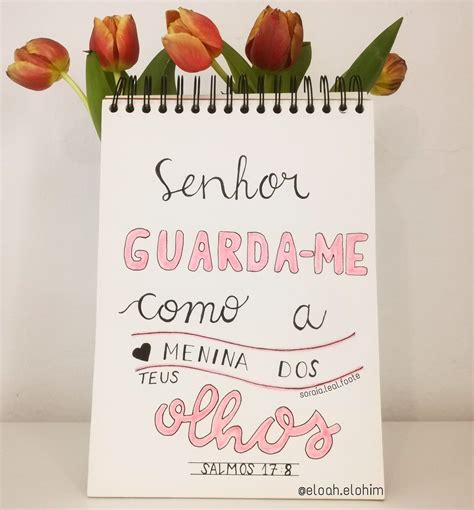 Senhor
GUARDA-ME
como a
MENINA DOS
TEUS
olhos
soraia.leal.foote
SALMOS 17:8
@eloah.elohim